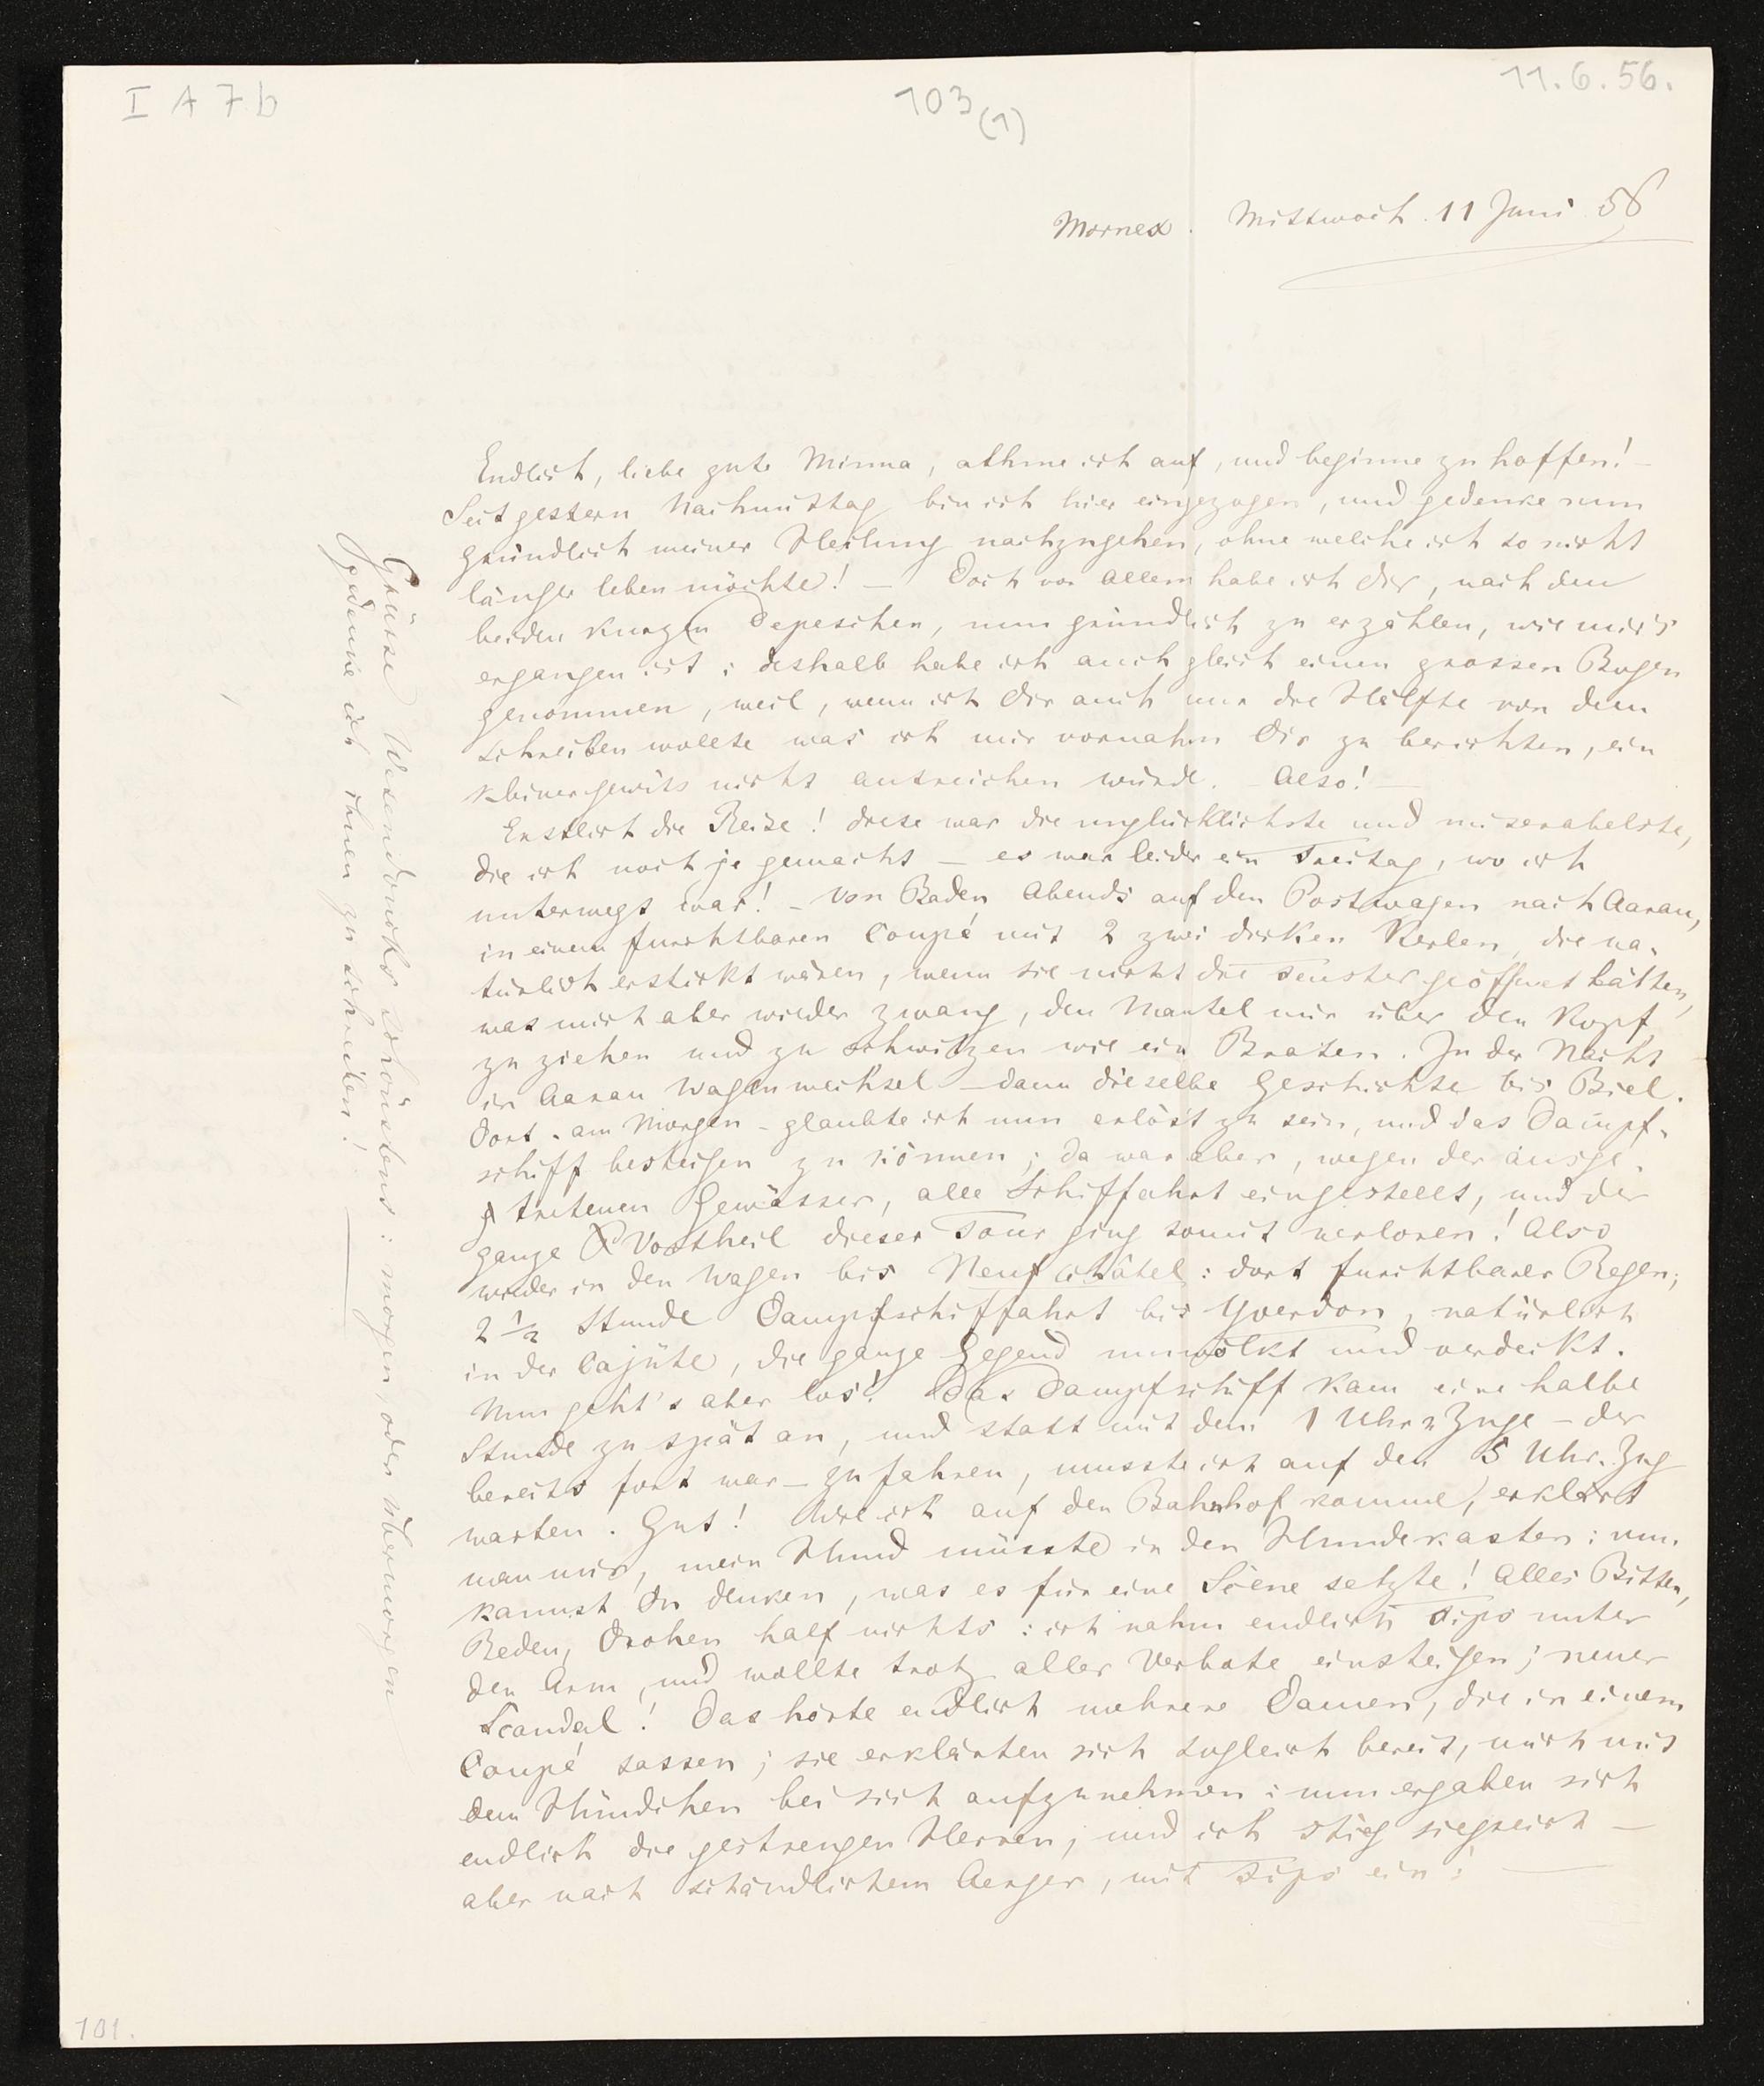 I A 7 b
103 (1)
11.6.56.
Mornex. Mittwoch. 11 Juni 56
Endlich, liebe gute Minna, athme ich auf, und beginne zu hoffen! –
Seit gestern Nachmittag bin ich hier eingezogen, und gedenke nun
gründlich meiner Heilung nachzugehen, ohne welche ich so nicht
länger leben möchte! – Doch vor allem habe ich Dir, nach den
beiden kurzen Depeschen, nun gründlich zu erzählen, wie mir's
ergangen ist; deshalb habe ich auch gleich einen grossen Bogen
genommen, weil, wenn ich Dir auch nur die Hälfte von dem
schreiben wollte was ich mir vornahm Dir zu berichten, ein
kleiner gewiss nicht ausreichen würde. – Also! –
Erstlich die Reise! Diese war die unglücklichste und miserabelste,
die ich noch je gemacht – es war leider ein Freitag, wo ich
unterwegs war! – Von Baden Abends auf den Postwagen nach Aarau,
in einem furchtbaren Coupé mit 2 zwei dicken Kerlen, die na-
türlich erstickt wären, wenn sie nicht die Fenster geöffnet hätten,
was mich aber wieder zwang, den Mantel mir über den Kopf
zu ziehen und zu schwitzen wie ein Braten. In der Nacht
in Aarau Wagenwechsel – dann dieselbe Geschichte bis Biel.
Dort – am Morgen – glaubte ich nun erlöst zu sein, und das Dampf-
schiff besteigen zu können; da war aber, wegen der ausge-
tretenen Gewässer, alle Schiffahrt eingestellt, und der
ganze Vortheil dieser Tour ging somit verloren! Also
wieder in den Wagen bis Neufchâtel: dort furchtbarer Regen;
2 1/2 Stunde Dampfschiffahrt bis Yverdon, natürlich
in der Cajüte, die ganze Gegend umwölkt und verdeckt.
Nun geht's aber los! Das Dampfschiff kam eine halbe
Stunde zu spät an, und statt mit dem 1 Uhr-Zuge – der
bereits fort war – zu fahren, musste ich auf den 5 Uhr-Zug
warten. Gut! Wie ich auf den Bahnhof komme, erklärt
man mir, mein Hund müsste in den Hundekasten: nun
kannst Du denken, was es für eine Scene setzte! Alles Bitten,
Reden, Drohen half nichts: ich nahm endlich Fips unter
den Arm, und wollte trotz aller Verbote einsteigen; neuer
Scandal! Das hörte endlich mehrere Damen, die in einem
Coupé sassen; sie erklärten sich sogleich bereit, mich mit
dem Hündchen bei sich aufzunehmen: nun ergaben sich
endlich die gestrengen Herren, und ich stieg siegreich –
aber nach schändlichem Aerger, mit Fips ein! –
Grüsse Wesendoncks schönstens: morgen, oder übermorgen
gedenke ich ihnen zu schreiben!
101.